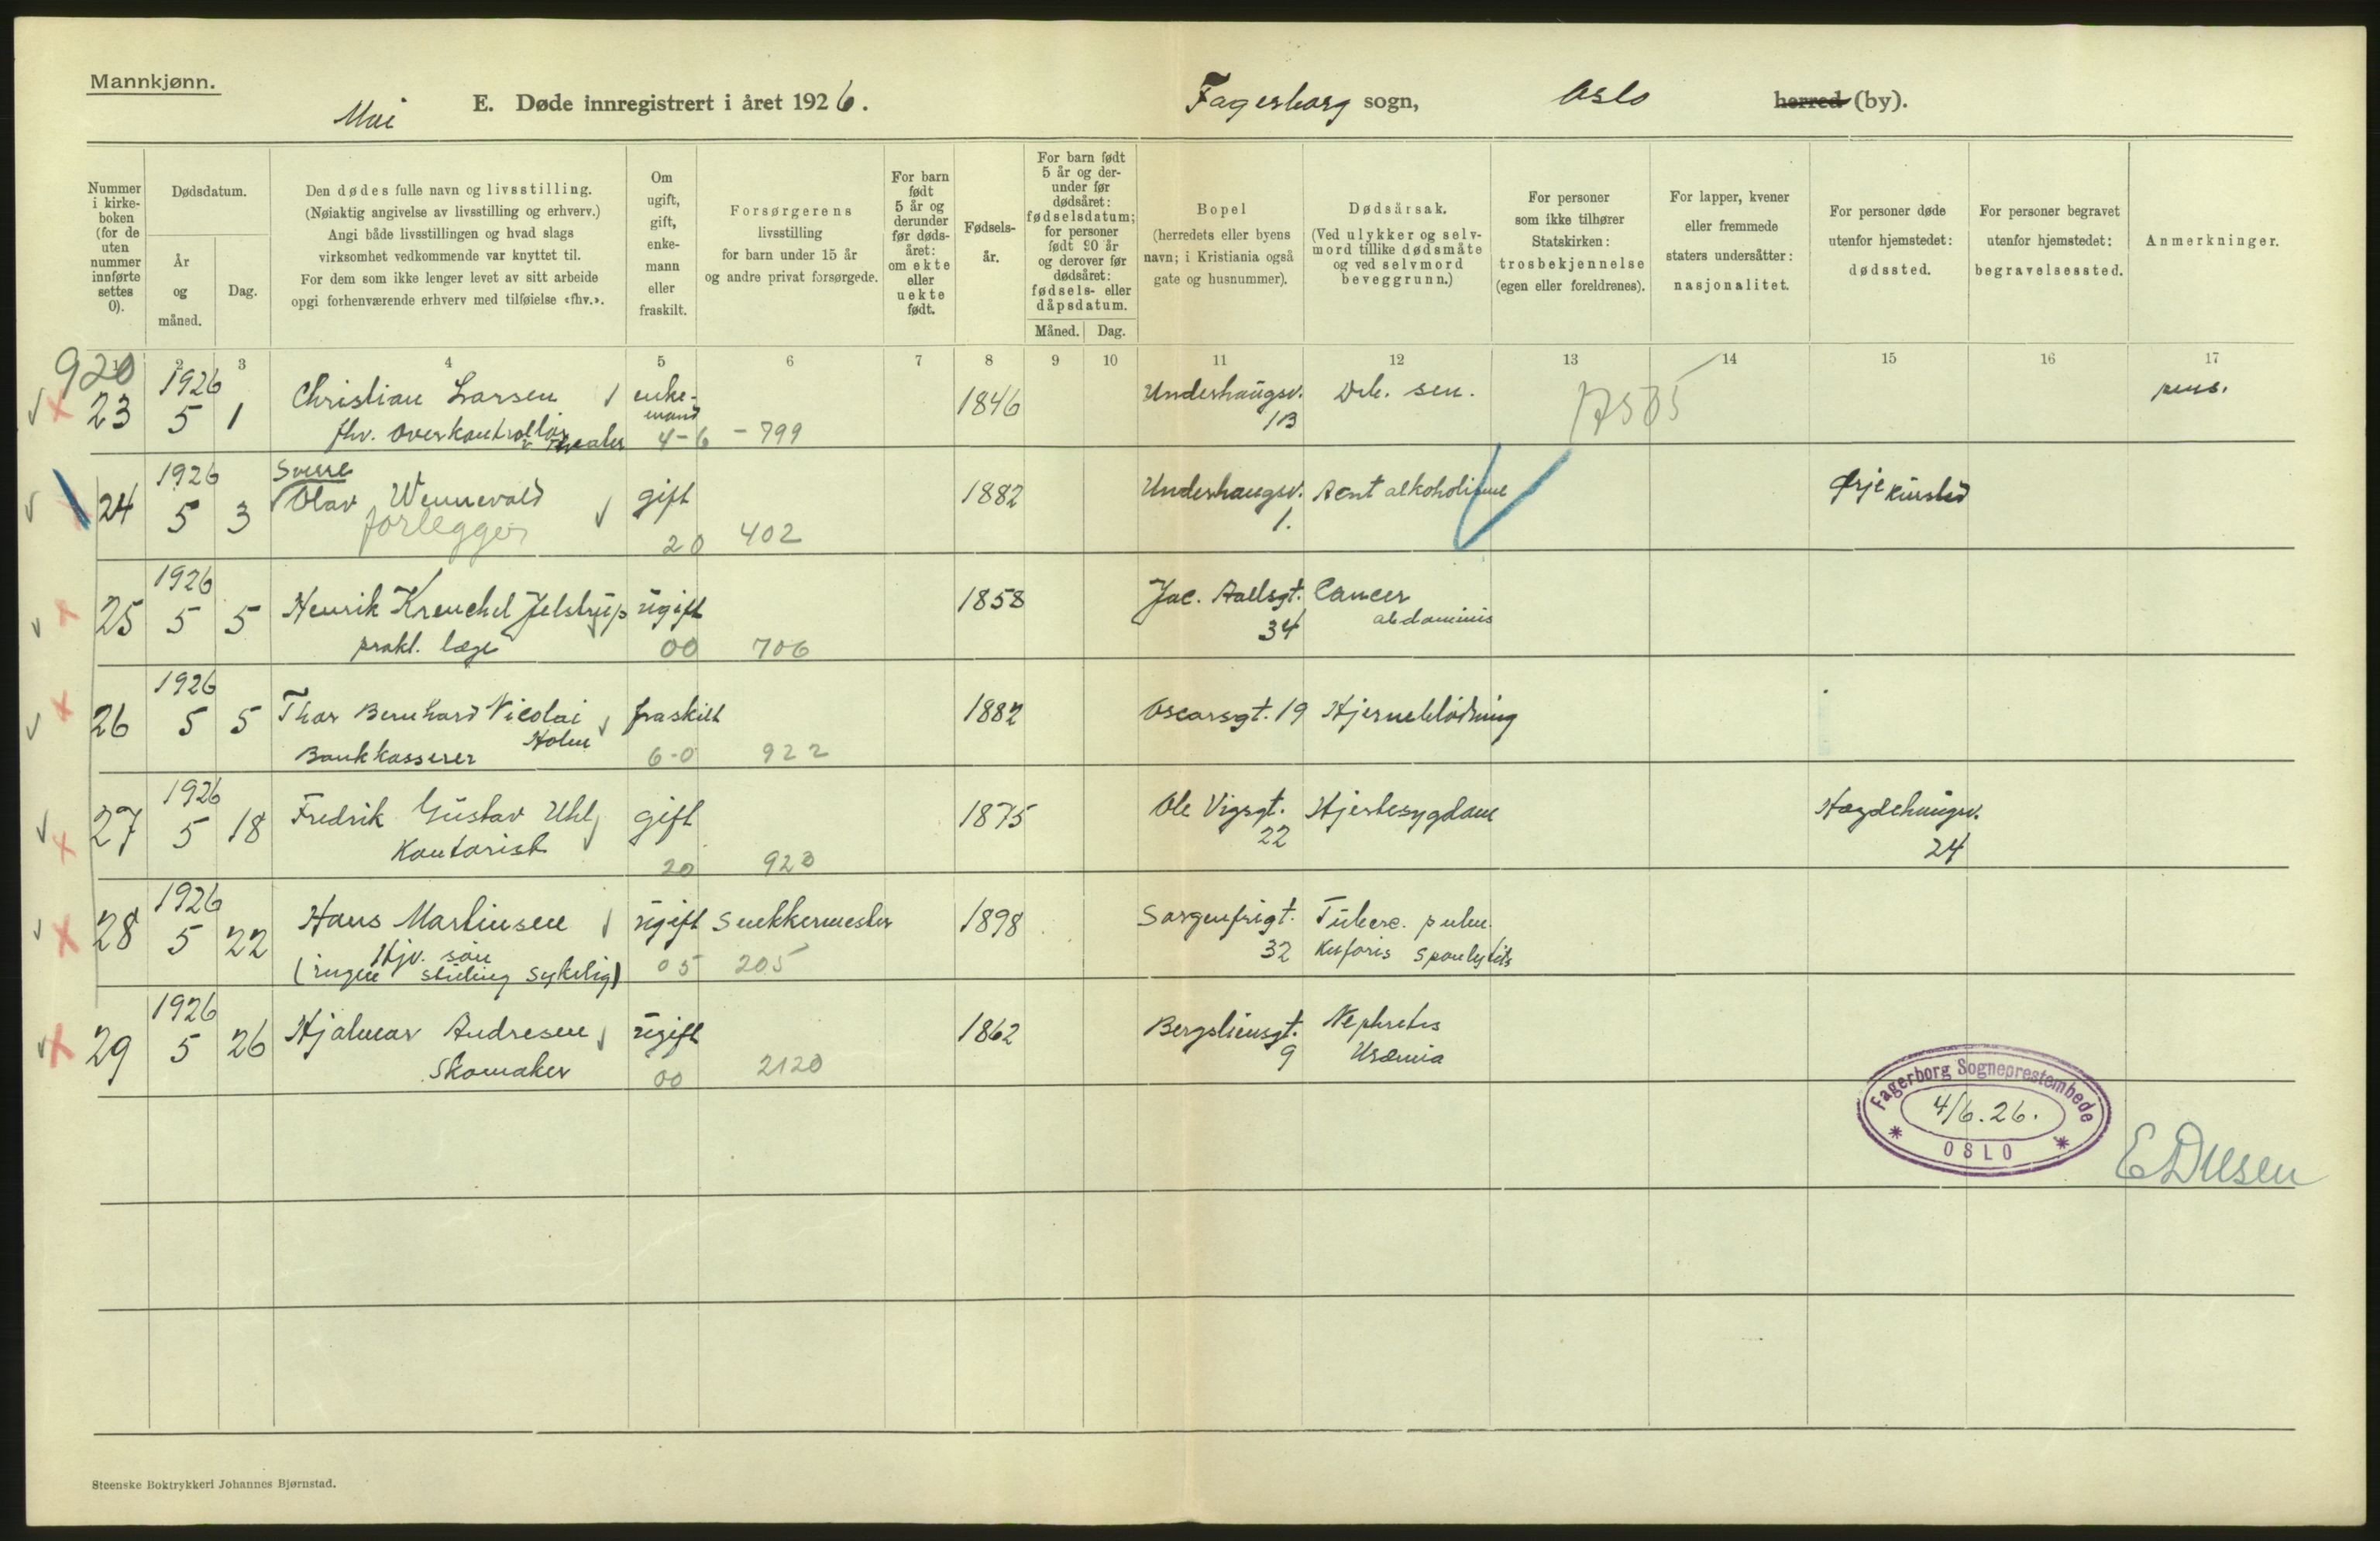 Mannkjønn.
Mai
E. Døde innregistrert i året 1926.
Fagerborg sogn, Oslo herred (by).
Nummer i kirke- boken (for de uten nummer innførte settes 0).
Dødsdatum.
År og måned.
Dag.
Den dødes fulle navn og livsstilling.
(Nøiaktig angivelse av livsstilling og erhverv.)
Angi både livsstillingen og hvad slags
virksomhet vedkommende var knyttet til.
For dem som ikke lenger levet av sitt arbeide
opgi forhenværende erhverv med tilføielse «fhv.».
Om ugift, gift, enke- mann eller fraskilt.
Forsørgerens
livsstilling
for barn under 15 år
og andre privat forsørgede.
For barn født 5 år og derunder før døds- året: om ekte eller uekte født.
Fødsels- år.
For barn født 5 år og der- under før dødsåret: fødselsdatum; for personer født 90 år og derover før dødsåret: fødsels- eller dåpsdatum.
Måned. Dag.
Bopel
(herredets eller byens
navn; i Kristiania også
gate og husnummer).
Dødsårsak.
(Ved ulykker og selv-
mord tillike dødsmåte
og ved selvmord
beveggrunn.)
For personer
som ikke tilhører
Statskirken:
trosbekjennelse
(egen eller foreldrenes).
For lapper, kvener
eller fremmede
staters undersåtter:
nasjonalitet.
For personer døde
utenfor hjemstedet:
dødssted.
For personer begravet
utenfor hjemstedet:
begravelsessted.
Anmerkninger.
920
2 3 4 5 6 7 8 9 10 11 12 13 14 15 16 17
1926
23 5 1 Christian Larsen enke- mand 1846 Underhaugsv. 1B Deb. sen. pens.
fhv. Overkontrollør v. Theater 4-6 - 799
1926
24 5 3 Sverre Olav Wennevold gift 1882 Underhaugsv. 1. Acut alkoholisme Ørje
forlegger 20 402
1926
25 5 5 Henrik Krenchel Jelstrup ugift 1858 Jac. Aallsgt. 34 Cancer abdominis
prakt. læge 00 706
1926
26 5 5 Thor Bernhard Nicolai Holm fraskilt 1882 Oscarsgt. 19 Hjerneblødning
Bankkasserer 6-0 922
1926
27 5 18 Fredrik Gustav Uhl gift 1875 Ole Vigsgt. 22 Hjertesygdom Hægdehaugsv. 24
Kontorist 20 923
1926
28 5 22 Hans Martinsen ugift Snekkermester 1898 Sorgenfrigt. 32 Tuberc. pulm.
Hjv. søn
(ingen stilling sykelig) 05 205
1926
29 5 26 Hjalmar Andresen ugift 1862 Bergsliensgt. 9 Nephritis Uræmia
Skomaker 00 2120
Fagerborg Sogneprestembede
4/6.26.
OSLO
Steenske Boktrykkeri Johannes Bjørnstad.